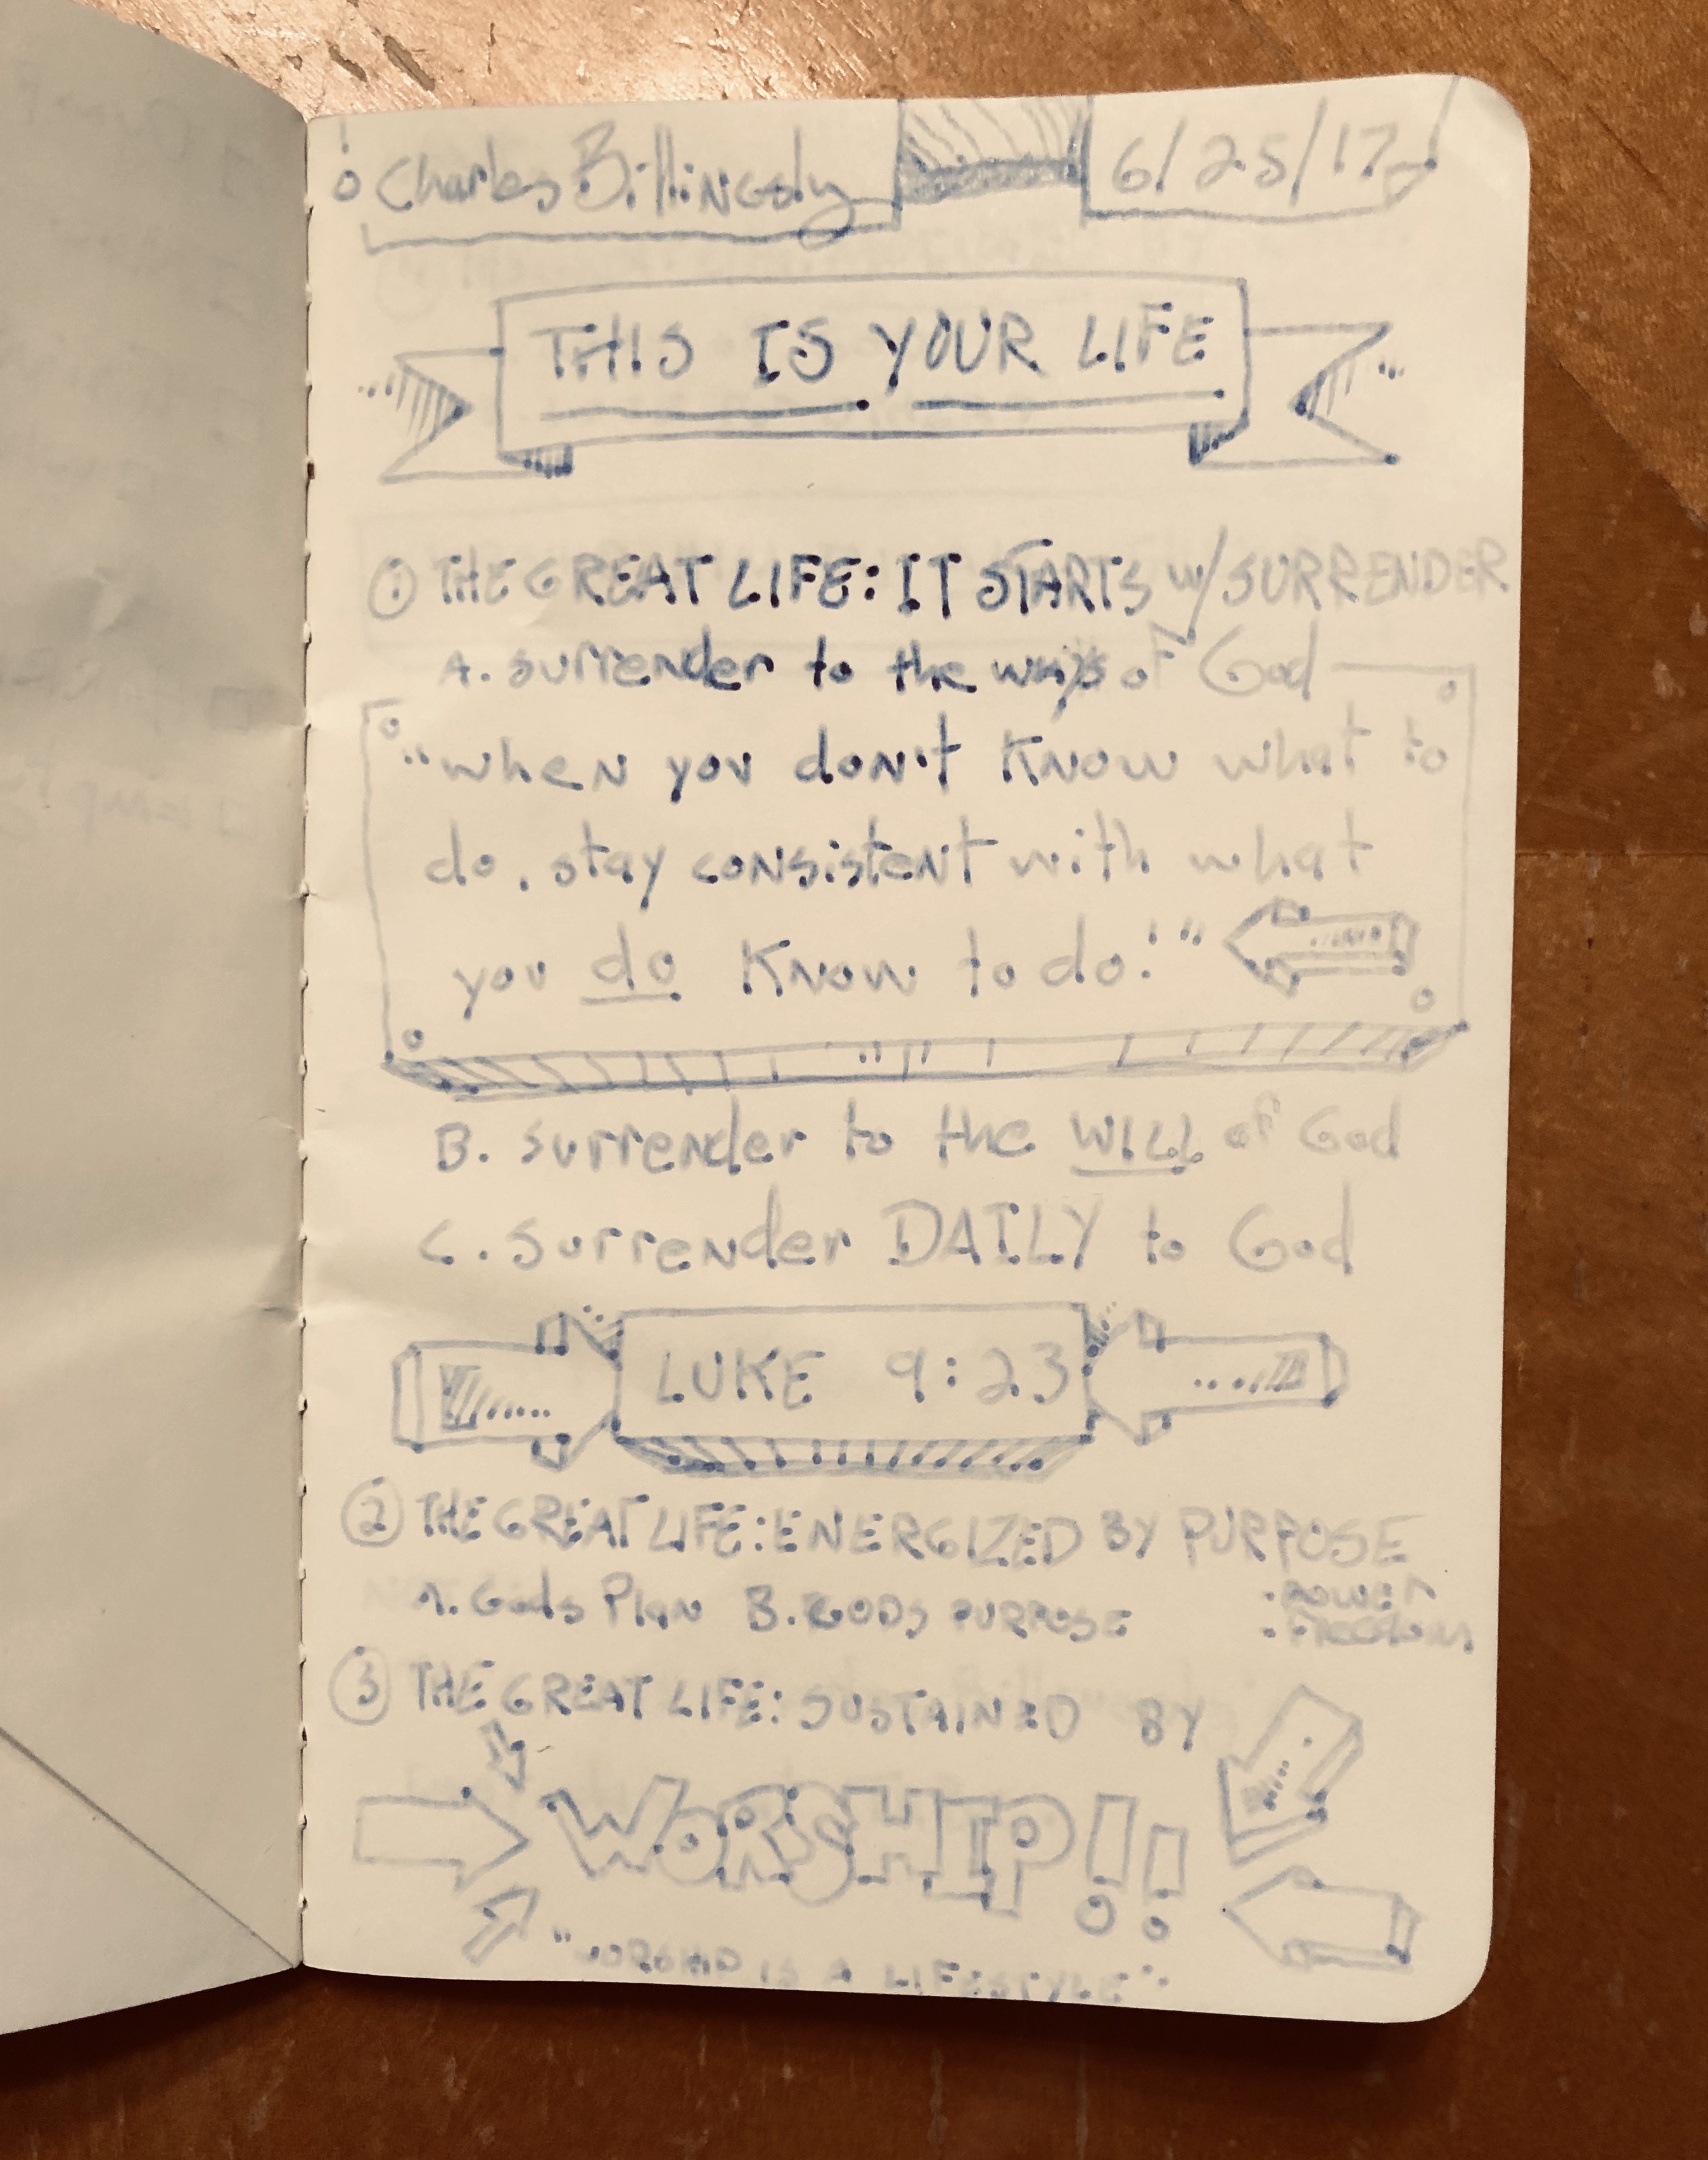 Charles Billingsly 6/25/17
THIS IS YOUR LIFE
① THE GREAT LIFE: IT STARTS w/ SURRENDER
A. surrender to the ways of God
"when you don't know what to
do, stay consistent with what
you do know to do!"
B. surrender to the WILL of God
C. surrender DAILY to God
LUKE 9:23
② THE GREAT LIFE: ENERGIZED BY PURPOSE
A. Gods Plan B. GODS PURPOSE
• POWER
• FREEDOM
③ THE GREAT LIFE: SUSTAINED BY
WORSHIP!!
"WORSHIP IS A LIFESTYLE"